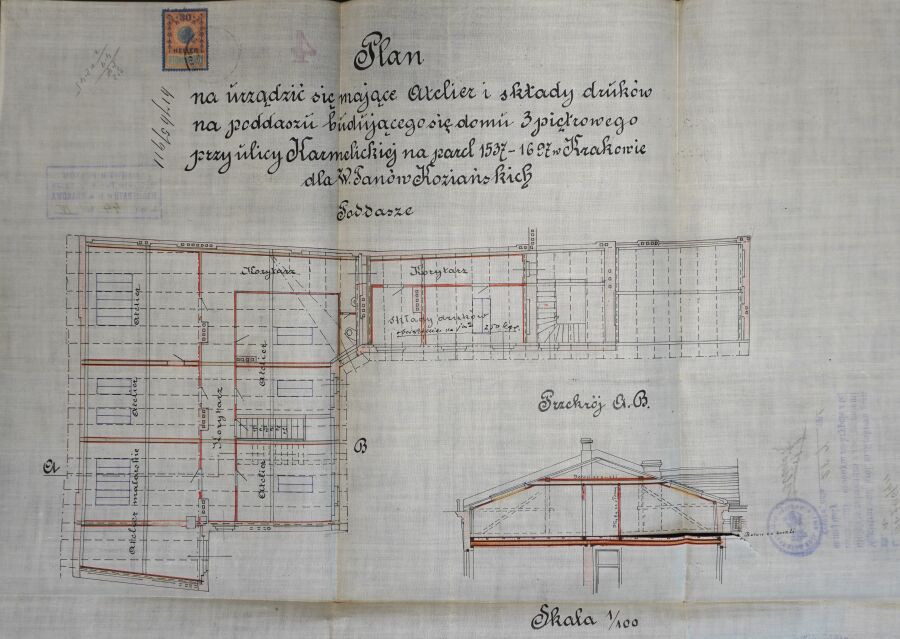 30
HELLER
4
Plan
na urządzić się mające Atelier i składy druków
na poddaszu budującego się domu 3 piętrowego
przy ulicy Karmelickiej na parcl 1537-1697 w Krakowie
dla W. Panów Koziańskich
Poddasze
Korytarz
Korytarz
Atelier
Składy druków
obciążenie na 1 m² 250 kgr.
Atelier
Atelier
Korytarz
schody
Przekrój A.B.
A
B
Atelier malarskie
Atelier
Skala 1/100